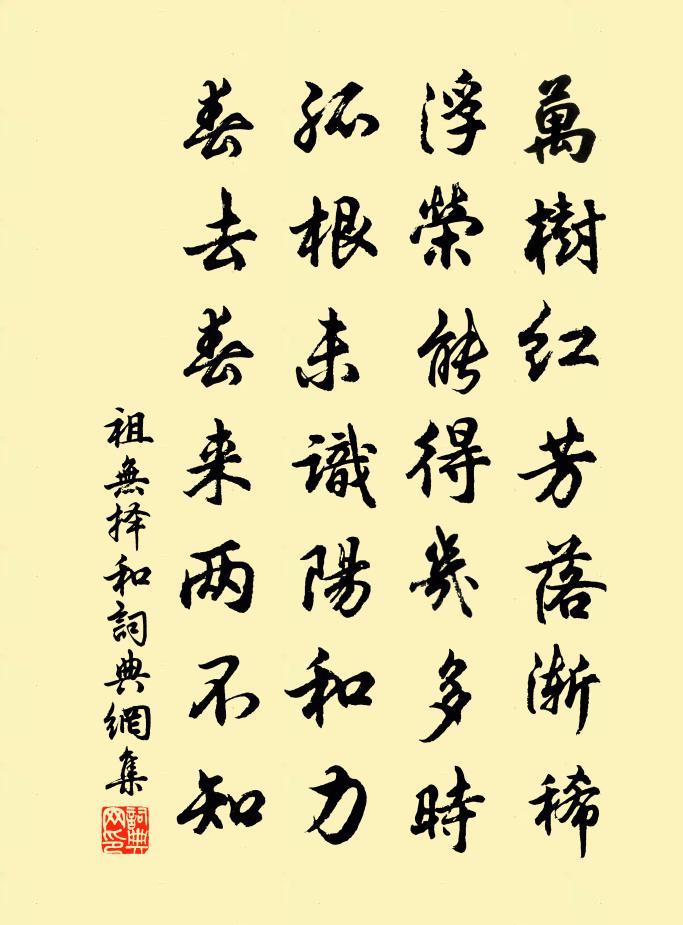 萬樹红芳落漸稀
浮榮能得幾多時
孤根未識陽和力
春去春来两不知
祖無择和詞典網集
詞典网印